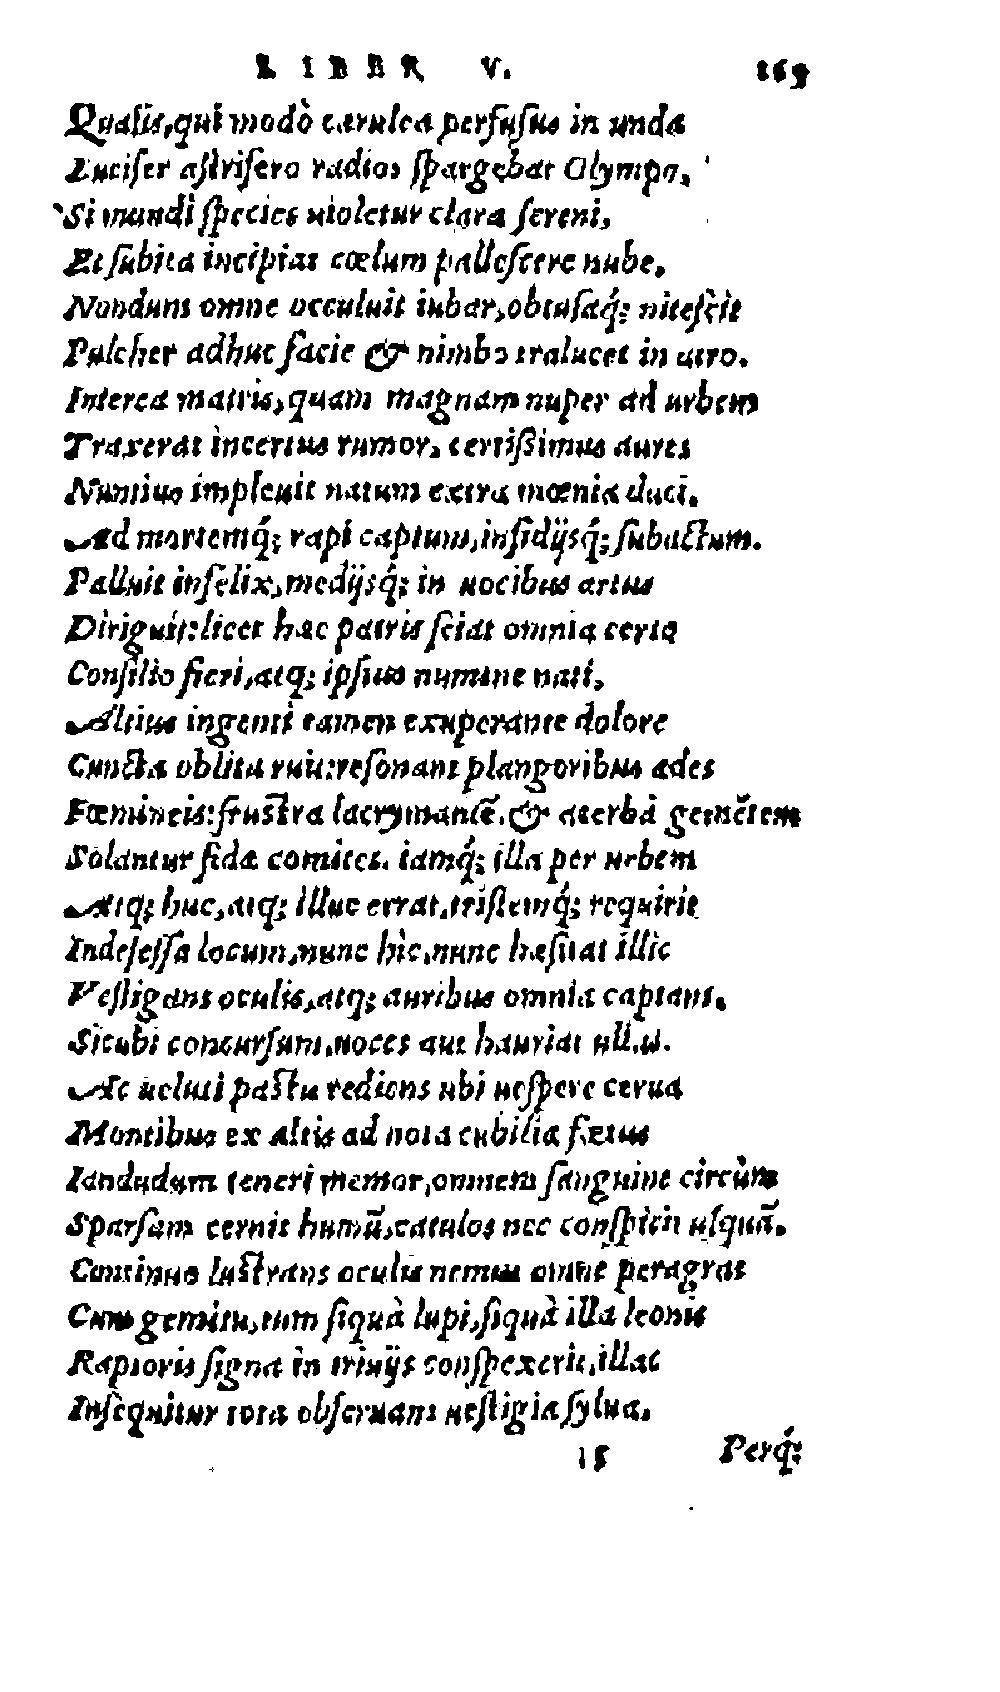 LIBER V. 169
Qualis, qui modò cærulea perfusus in unda
Lucifer astrifero radios spargebat Olympo,
Si mundi species uioletur clara sereni,
Et subita incipiat cœlum pallescere nube,
Nondum omne occuluit iubar, obtusaq́; nitescit
Pulcher adhuc facie & nimbo tralucet in atro.
Interea matris, quam magnam nuper ad urbem
Traxerat incertus rumor, certißimus aures
Nuntius impleuit natum extra mœnia duci.
Ad mortemq́; rapi captum, insidijsq́; subactum.
Palluit infelix, medijsq́; in uocibus artus
Diriguit: licet hæc patris sciat omnia certa
Consilio fieri, atq; ipsius numine nati,
Altius ingenti tamen exuperante dolore
Cuncta oblita ruit: resonant plangoribus ædes
Fœmineis: frustra lacrymantē, & acerbà gemētem
Solantur fidæ comites. iamq́; illa per urbem
Atq; huc, atq; illuc errat, tristemq́; requirit
Indefessa locum, nunc hîc, nunc hæsitat illîc
Vestigans oculis, atq; auribus omnia captans,
Sicubi concursum, uoces aut hauriat ullas.
Ac ueluti pastu rediens ubi uespere cerua
Montibus ex altis ad nota cubilia fœtus
Iandudum teneri memor, omnem sanguine circùm
Sparsam cernit humū, catulos nec conspicit usquā.
Continuo lustrans oculis nemus omne peragrat
Cum gemitu, tum siquà lupi, siquà illa leonis
Raptoris signa in triuijs conspexerit, illac
Insequitur tota obseruans uestigia sylua.
l 5 Perq́;